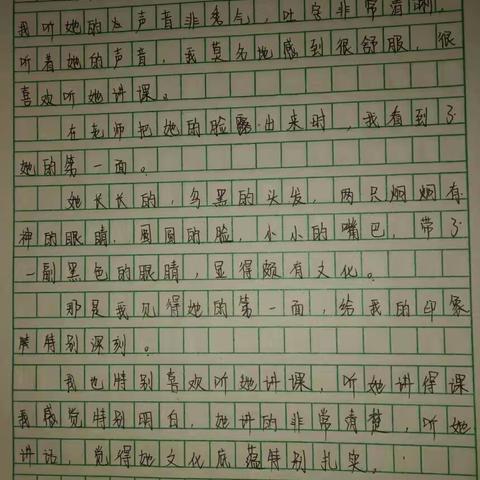 我听她的声音非秀气，吐字非常清晰，
听着她的声音，我莫名地感到很舒服，很
喜欢听她讲课。
在老师把她的脸露出来时，我看到了
她的第一面。
她长长的，乌黑的头发，两只炯炯有
神的眼睛，圆圆的脸，小小的嘴巴，带了
一副黑色的眼睛，显得颇有文化。
那是我见得她的第一面，给我的印象
特别深刻。
我也特别喜欢听她讲课，听她讲得课
我感觉特别明白，她讲的非常清楚，听她
讲话，觉得她文化底蕴特别扎实。